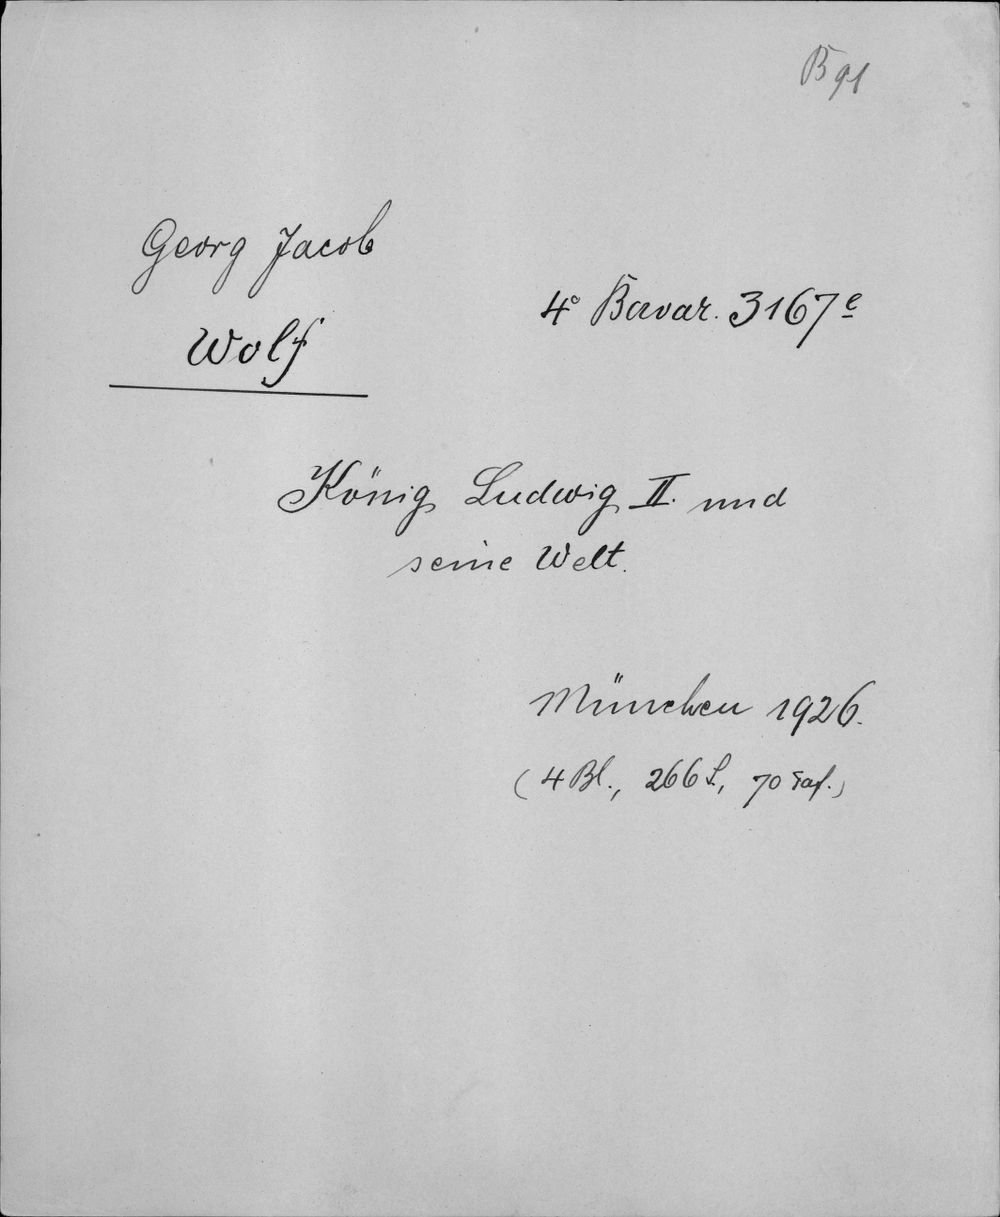 B 91
Georg Jacob
Wolf
4° Bavar. 3167 e
König Ludwig II. und
seine Welt.
München 1926.
(4 Bl., 266 S., 70 Taf.)